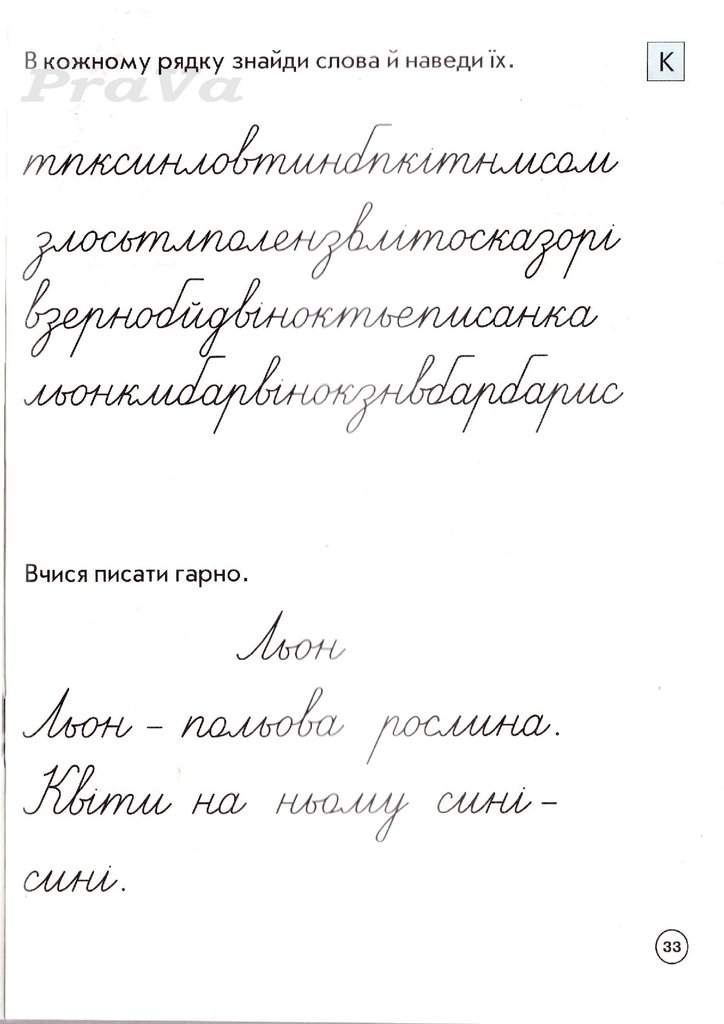 В кожному рядку знайди слова й наведи їх.
К
PraVa
тпксинловтинбпкітнмсом
злосьтлполензвлітосказорі
взернобйдвіноктьеписанка
льонкмбарвінокзнвбарбарис
Вчися писати гарно.
Льон
Льон – польова рослина.
Квіти на ньому сині –
сині.
33